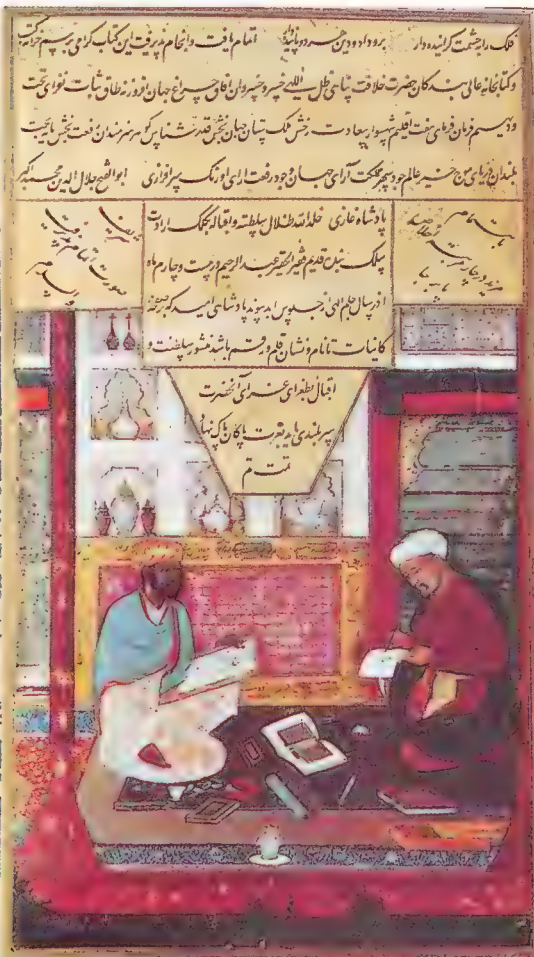 فلک را بحشمت گراینده دار برو داد و دین هر دو پاینده دار اتمام یافت وانجام پذیرفت این کتاب گرامی برسم خزانه
وکتابخانه عالی بندگان حضرت خلافت پناهی ظل اللهی خسرو خسروان آفاق چراغ جهان افروز نه طاق ثبات تخت
ودیهیم فرمان فرمای هفت اقلیم شهسوار سعادت رخش ملک ستان جهان بخش قدر شناس گوهر هنرمندان رفعت بخش
بلندان دریای موج خیز عالم جود سپهر مملکت آرای جهان وجود رفعت ارای اورنگ سرافرازی ابو الفتح جلال الدین محمد اکبر
پادشاه غازی خلد الله ظلال سلطنته واقباله بکلک ارادت
سلک بنده قدیم فقیر الحقیر عبد الرحیم در بیست وچهارم ماه
آذر سال الهی از جلوس ابد پیوند پادشاهی امید که بر صفحه
کاینات تا نام ونشان قلم ورقم باشد منشور سلطنت و
اقبال بطغرای غرای آنحضرت
سربلندی یابد بعزت پاکان پاک نهاد
تمت م
صورت اتمام پذیرفت